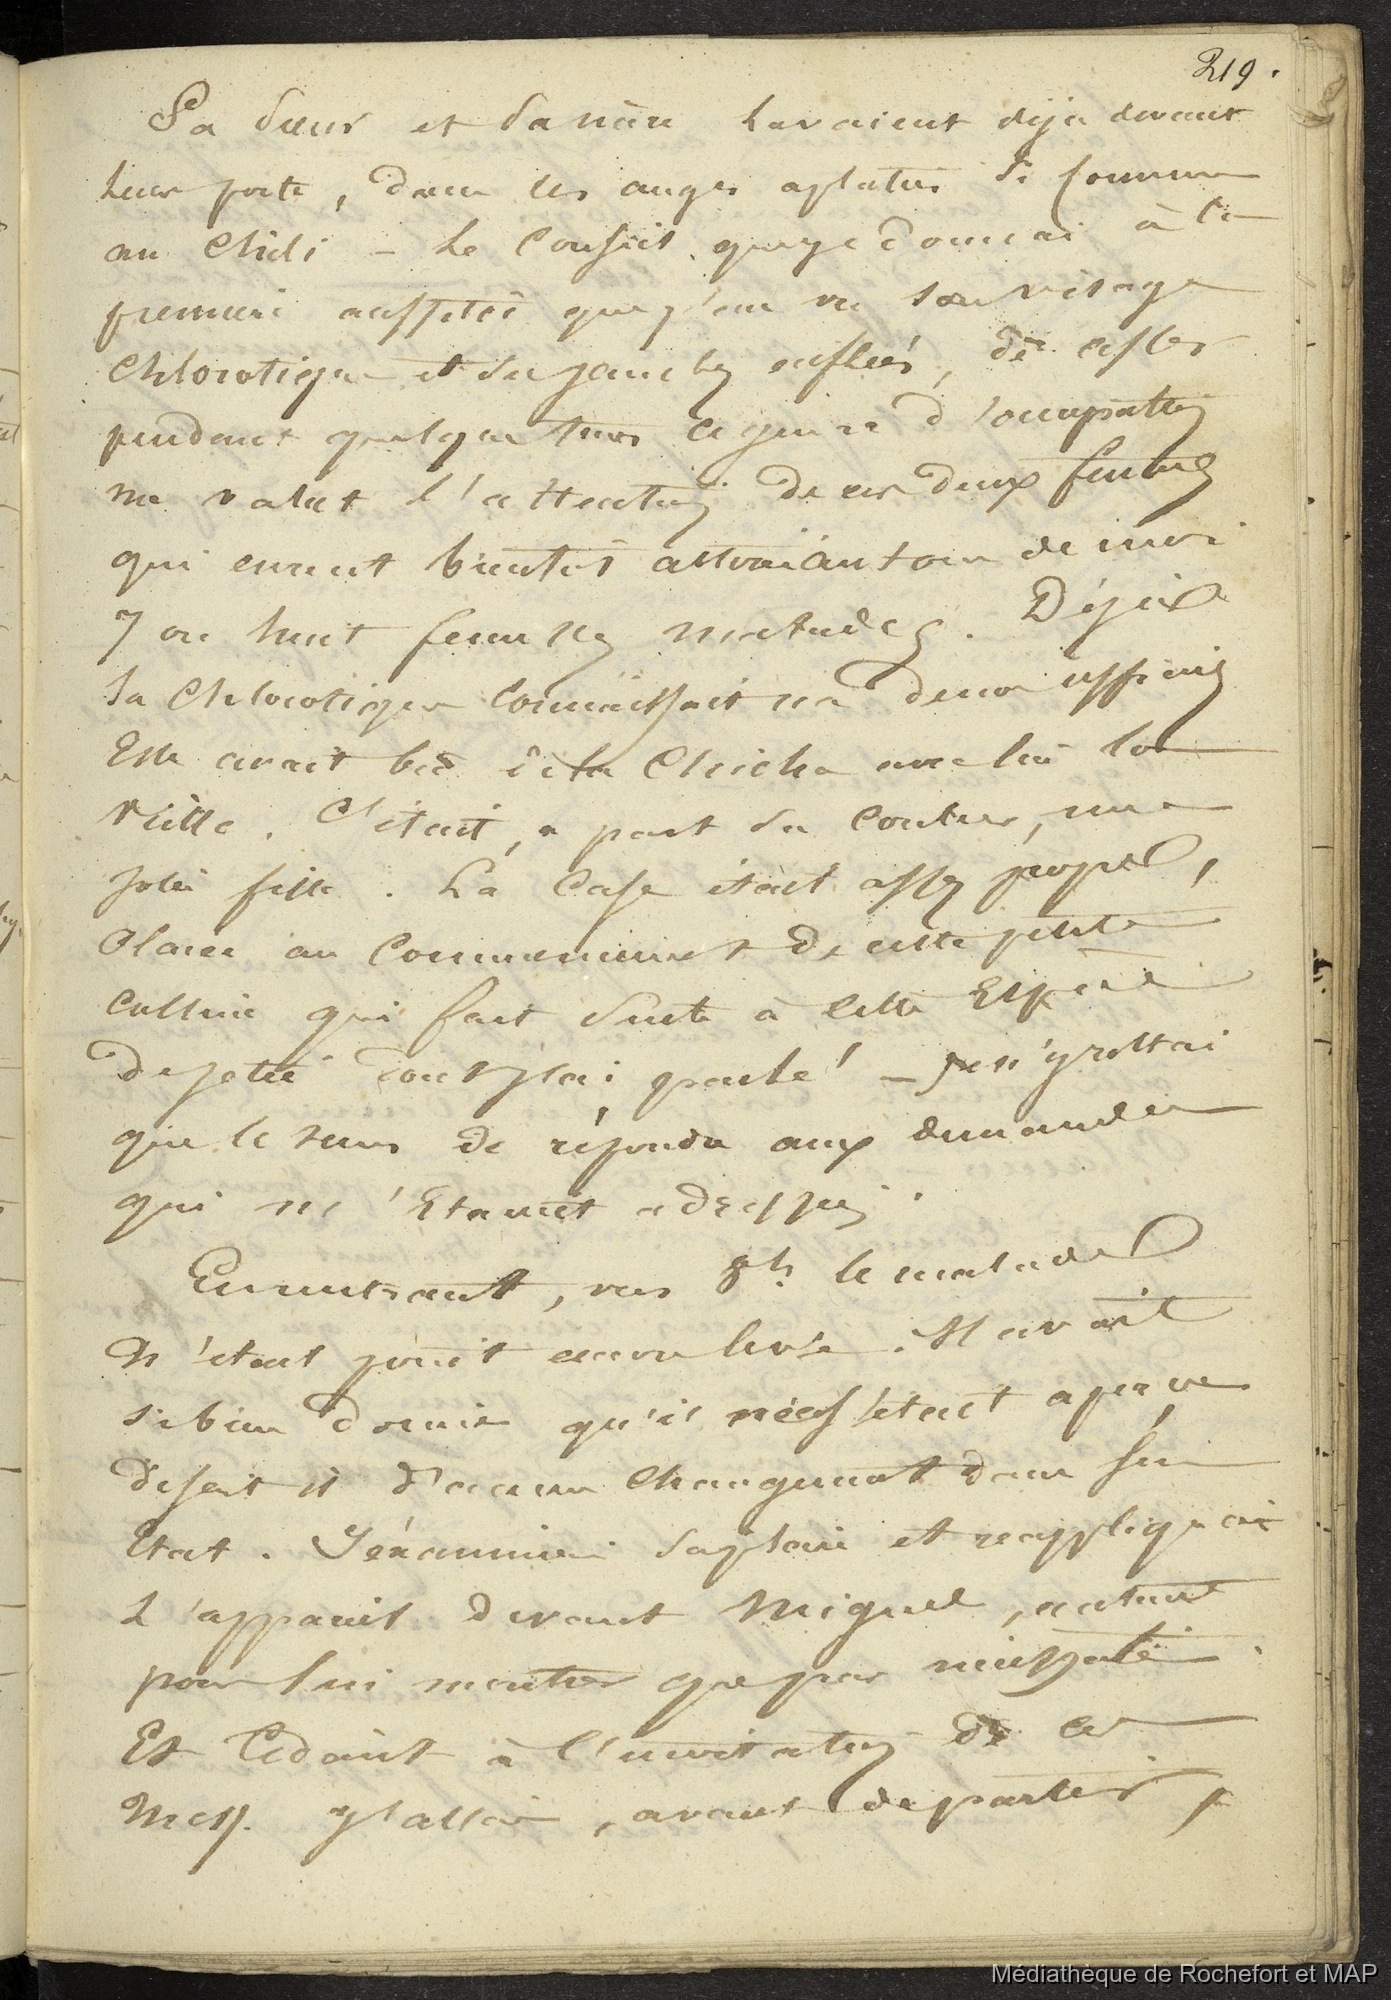 219.
Sa sœur et sa mère lavaient déja devant
leur porte, dans les auges aplaties si communes
au Chili - Le conseil que je donnai à la
premiere aussitôt que j'eus vu son visage
chlorotique et ses jambes enflées, de cesser
pendant quelque tems ce genre d'occupation
me valut l'attention de ces deux femmes
qui eurent bientôt attroué autour de moi
7 ou huit femmes malades. Déja
la chlorotique connaissait ma demi
Elle avait bu de la chicha avec lui la
veille. C'était, a part sa couleur, une
jolie fille. La case était assez propre,
placée au commencement de cette petite
colline qui fait suite à cette espèce
de jetée dont j'ai parlé - Je n'y restai
que le tems de répondre aux demandes
qui m'étaient adressées.
En rentrant, vers 8h. le malade
n'était point encore levé. Il avait
si bien dormi qu'il ne s'était aperçu
disait il d'aucun changement dans son
état. J'examinai sa plaie et reappliquai
l'appareil devant Miguel, autant
pour lui montrer que par nécessité.
Et cédant à l'invitation de ces
Mess. j'allai, avant de partir,
Médiathèque de Rochefort et MAP